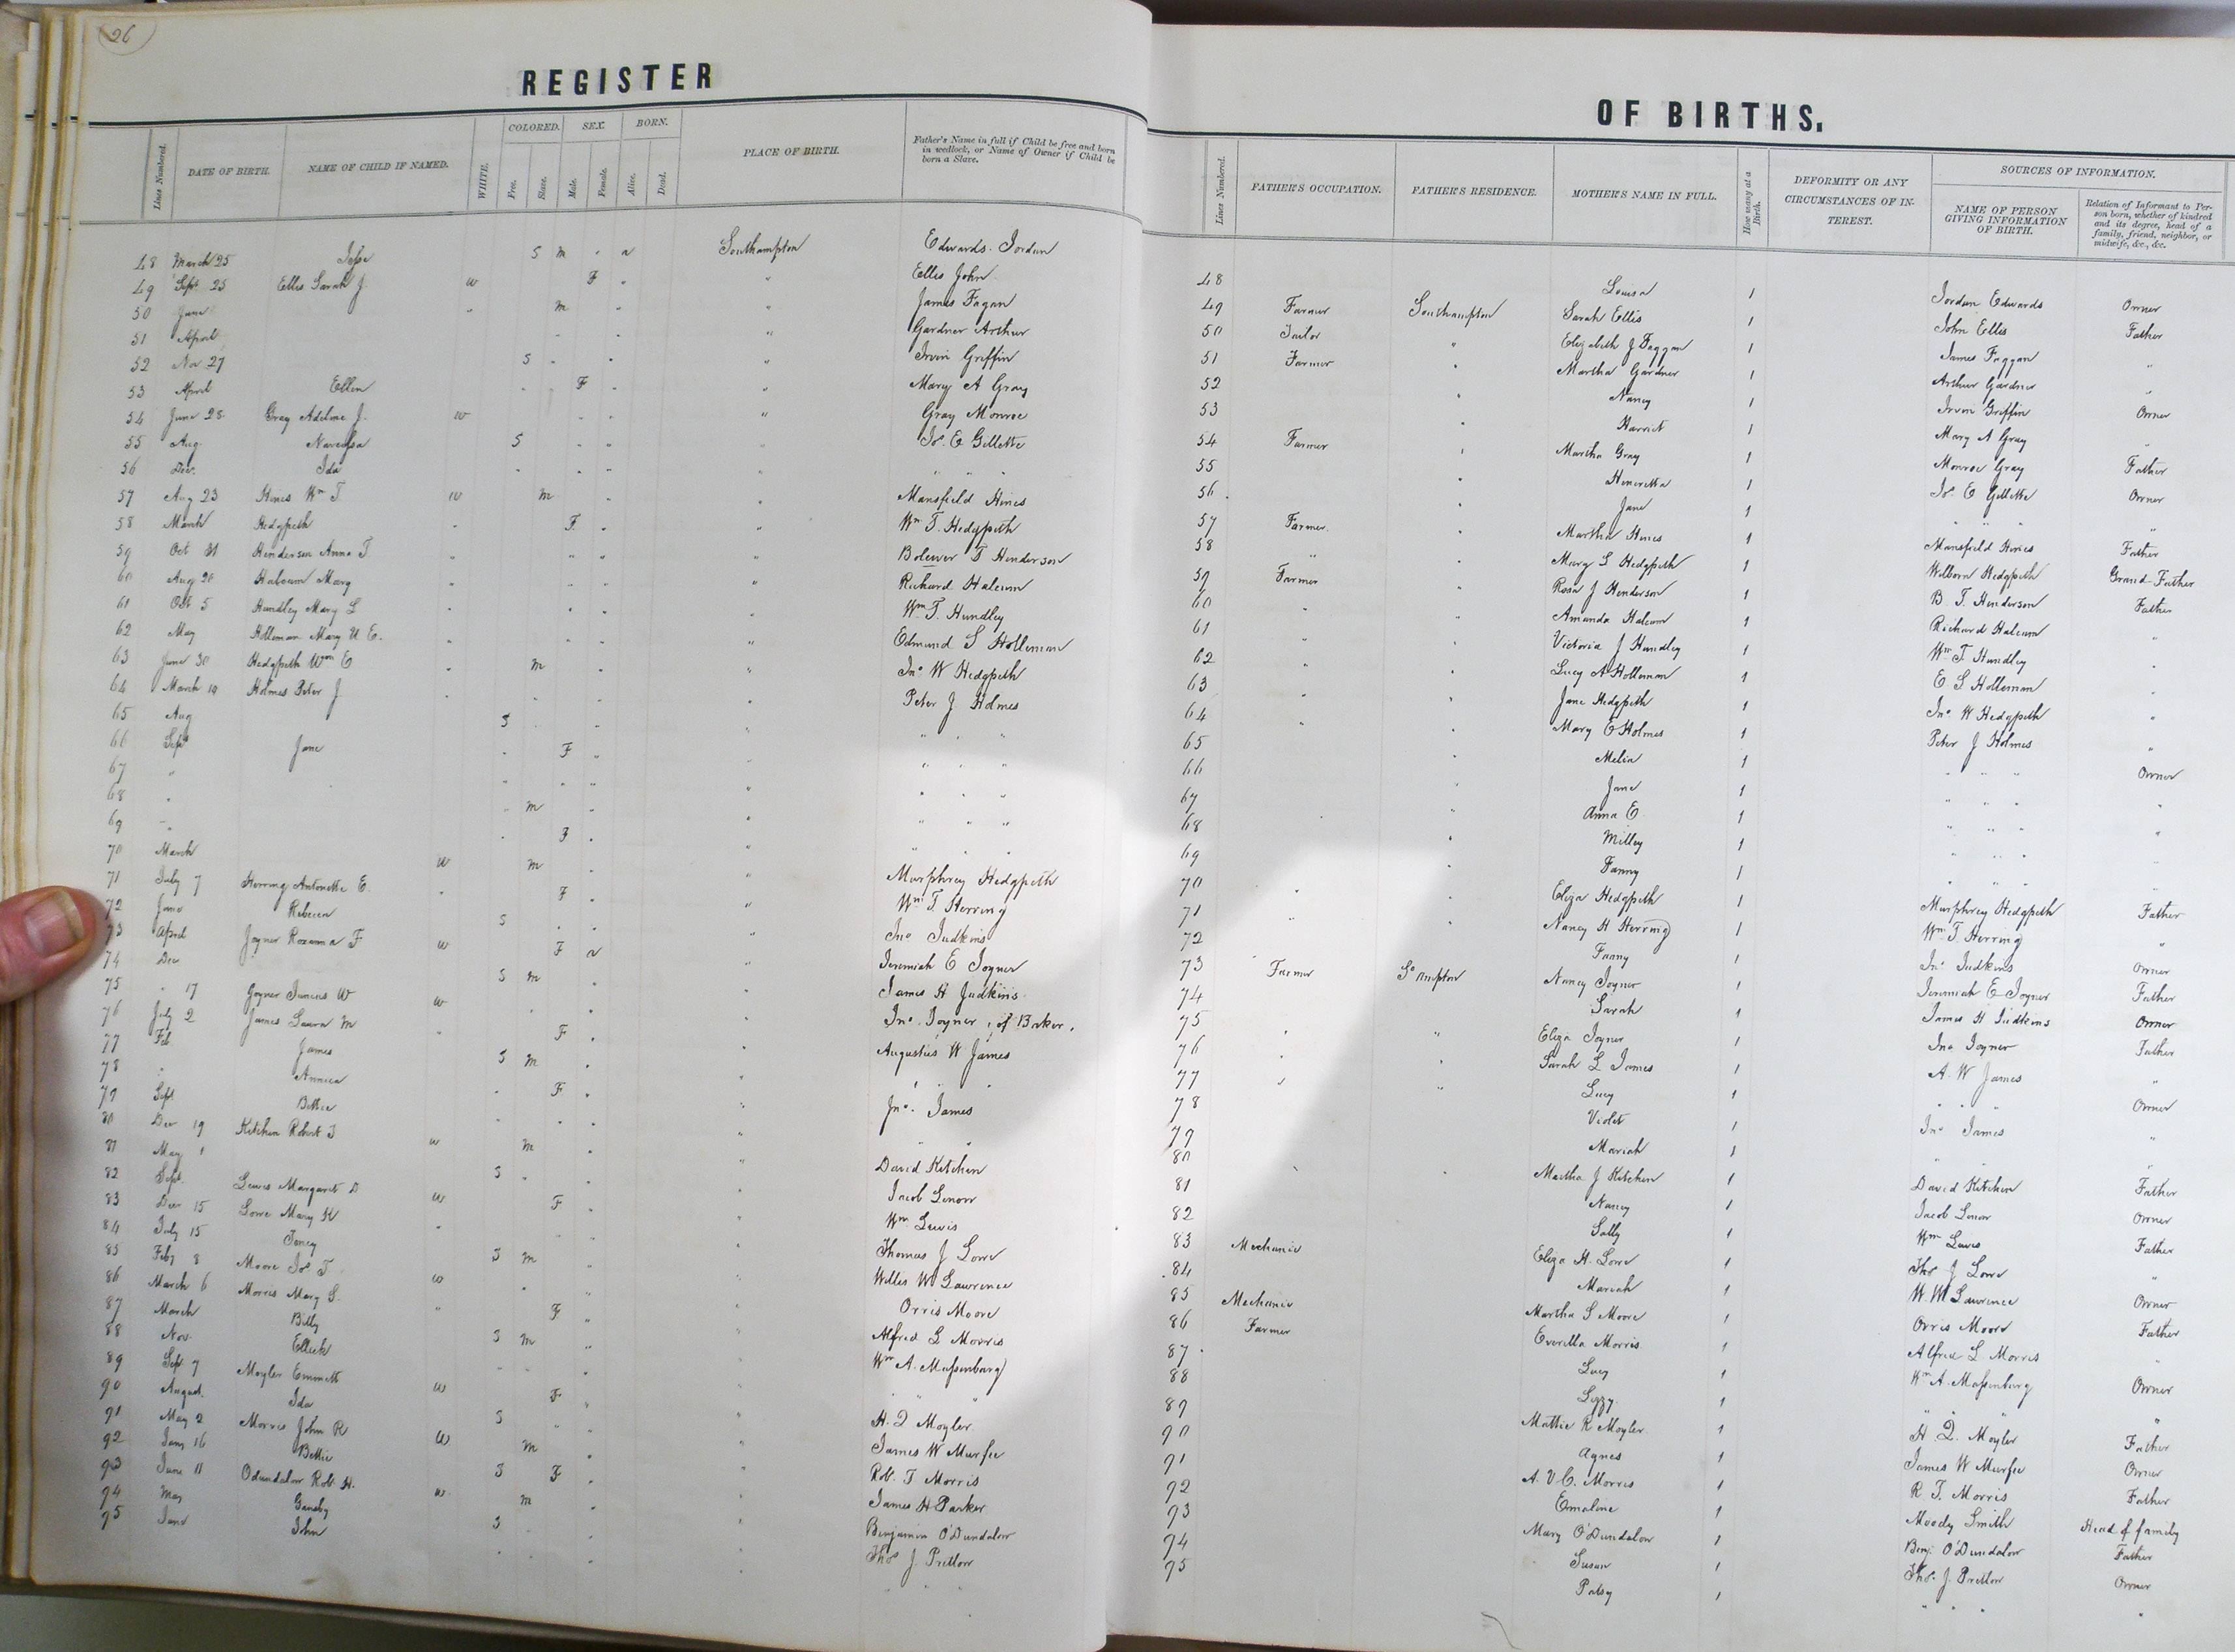 26
REGISTER
OF BIRTHS.
Lines Numbered.
DATE OF BIRTH.
NAME OF CHILD IF NAMED.
WHITE.
COLORED.
Free.
Slave.
SEX.
Male.
Female.
BORN.
Alive.
Dead.
PLACE OF BIRTH.
Father's Name in full if Child be free and born in wedlock, or Name of Owner if Child be born a Slave.
Lines Numbered.
FATHER'S OCCUPATION.
FATHER'S RESIDENCE.
MOTHER'S NAME IN FULL.
How many at a Birth.
DEFORMITY OR ANY CIRCUMSTANCES OF INTEREST.
SOURCES OF INFORMATION.
NAME OF PERSON GIVING INFORMATION OF BIRTH.
Relation of Informant to Person born, whether of kindred and its degree, head of a family, friend, neighbor, or midwife, &c., &c.
48 March 25 Jesse S m " a Southampton Edwards Jordan 48 Louisa 1 Jordan Edwards Owner
49 Sept 25 Ellis Sarah J. w F " " Ellis John 49 Farmer Southampton Sarah Ellis 1 John Ellis Father
50 June " m " James Fagan 50 Tailor " Elizabeth J Faggan 1 James Faggan "
51 April " " " Gardner Arthur 51 Farmer " Martha Gardner 1 Arthur Gardner "
52 Nov 27 S " " " Irvin Griffin 52 " Nancy 1 Irvin Griffin Owner
53 April Ellen " F " " Mary A Gray 53 " Harriet 1 Mary A Gray "
54 June 28 Gray Adeline J. w " " " Gray Monroe 54 Farmer " Martha Gray 1 Monroe Gray Father
55 Aug. Narcissa S " " Jos. E Gillette 55 " Henrietta 1 Jos. E Gillette Owner
56 Dec. Ida " " " " " " 56 Jane 1 " " " "
57 Aug 23 Hines Wm T. w m " " Mansfield Hines 57 Farmer " Martha Hines 1 Mansfield Hines Father
58 March Hedgpeth " F " " Wm T. Hedgpeth 58 " " Mary L Hedgpeth 1 Welborn Hedgpeth Grand-Father
59 Oct 31 Henderson Anna T " " " " T Henderson 59 Farmer " J Henderson 1 B. T. Henderson Father
60 Aug 20 Halcum Mary " " " " Richard Halcum 60 " " Amanda Halcum 1 Richard Halcum "
61 Oct 5 Hundley Mary L " " " " Wm T. Hundley 61 " " Victoria J Hundley 1 Wm T. Hundley "
62 May Holleman Mary U E. " " " " Edmund S Holleman 62 " " Lucy A Holleman 1 E. S Holleman "
63 June 30 Hedgpeth Wm E " m " " Jno. W Hedgpeth 63 " " Jane Hedgpeth 1 Jno. W Hedgpeth "
64 March 19 Holmes Peter J " " " " Peter J Holmes 64 " " Mary E Holmes 1 Peter J Holmes "
65 Aug S " " " " " " 65 " Melia 1 " " " Owner
66 Sept Jane " F " " " " " 66 " Jane 1 " " " "
67 " " " " " " " " 67 Anna E. 1 " " " "
68 " " m " " " " " 68 Milley 1 " " " "
69 " " F " " " " " 69 Fanny 1 " " " "
70 March w m " " Murphrey Hedgpeth 70 " " Eliza Hedgpeth 1 Murphrey Hedgpeth Father
71 July 7 Herring Antonette E. " F " " Wm T. Herring 71 " " Nancy H Herring 1 Wm T. Herring "
72 June Rebecca S " " " Jno Judkins 72 Fanny 1 Jno. Judkins Owner
73 April Joyner Roxanna F w F a " Jeremiah E Joyner 73 Farmer So ampton Nancy Joyner 1 Jeremiah E Joyner Father
74 Dec S m " " James H Judkins 74 Sarah 1 James H Judkins Owner
75 " 17 Joyner Junius W w " " " Jno. Joyner, of Baker. 75 " " Eliza Joyner 1 Jno Joyner Father
76 July 2 James Laura M " F " " Augustus W James 76 " " Sarah L James 1 A. W James "
77 Feb. James S m " " " " " 77 " Lucy 1 " " " Owner
78 " Annica " F " " Jno. James 78 Violet 1 Jno James "
79 Sept Bettie " " " " " " 79 Mariah 1 " " "
80 Dec 19 Kitchen Robert J w m " " David Kitchen 80 " " Martha J Kitchen 1 David Kitchen Father
81 May 1 S " " Jacob Lenow 81 Nancy 1 Jacob Lenow Owner
82 Sept. Lewis Margaret D w F " Wm Lewis 82 Sally 1 Wm Lewis Father
83 Dec 15 Lowe Mary K " " " " Thomas J Lowe 83 Mechanic Eliza H. Lowe 1 Thos J Lowe "
84 July 15 S m " " Willis W Lawrence 84 Mariah 1 W. W Lawrence Owner
85 Feby 8 Moore Jos T. w " " " Orris Moore 85 Mechanic Martha S Moore 1 Orris Moore Father
86 March 6 Morris Mary S. " F " " Alfred L Morris 86 Farmer Everilla Morris 1 Alfred L Morris "
87 March Billy S m " " Wm A. Massenburg 87 Lucy 1 Wm A. Massenburg Owner
88 Nov. Elleck " " " " " " 88 Lizzy 1 " " " "
89 Sept 7 Moyler Emmett w F " " H. Q Moyler 89 Mattie R Moyler 1 H. Q. Moyler Father
90 August Ida S " " " James W Murfee 90 Agnes 1 James W Murfee Owner
91 May 2 Morris John R w m " " Rob. T Morris 91 A. V. C. Morris 1 R T. Morris Father
92 Jany 16 Bettie S F " " James H Parker 92 Emaline 1 Moody Smith Head of family
93 June 11 Odundalow Rob. H. w m " " Benjamin O'Dundalow 93 Mary O'Dundalow 1 Benj. O'Dundalow Father
94 May S " " Thos J Pretlow 94 Susan 1 Thos. J Pretlow Owner
95 June John " " " " " 95 Patsy 1 " " " "